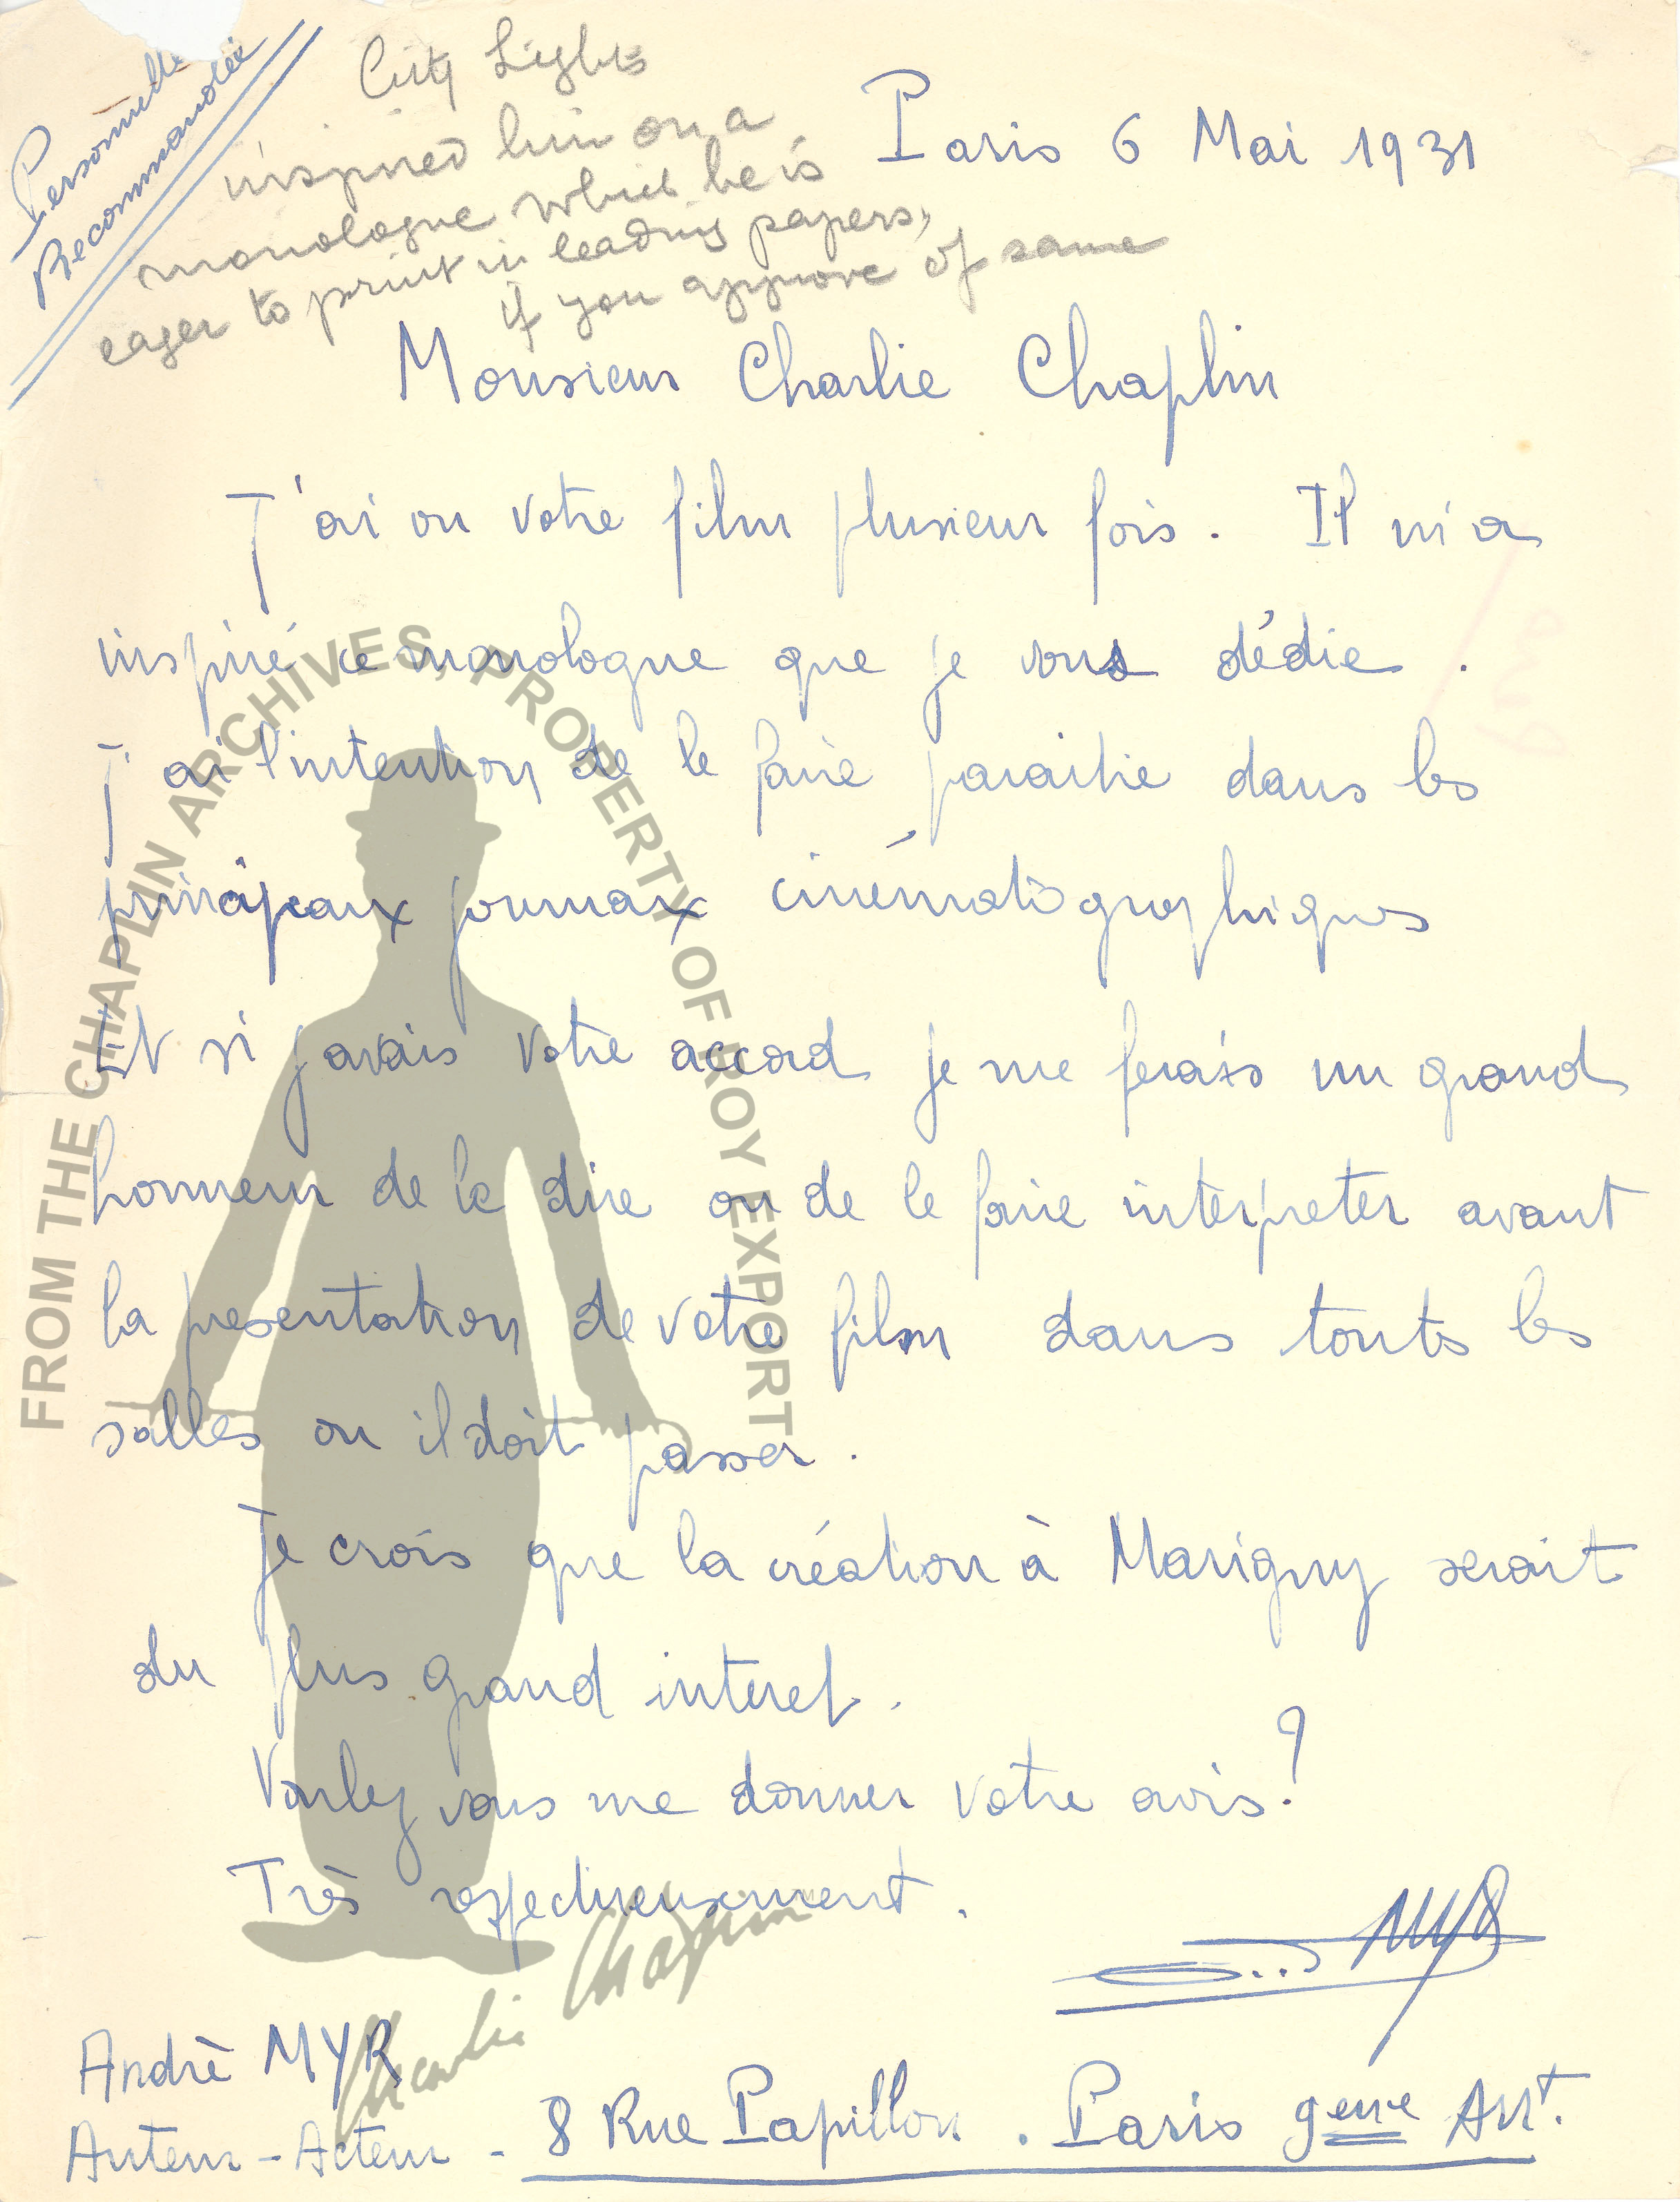 Personnelle
Recommandée
City Lights
inspired him on a
monologue which he is
eager to print in leading papers,
if you approve of same
Paris 6 Mai 1931
Monsieur Charlie Chaplin
J'ai vu votre film plusieur fois. Il m'a
inspiré ce monologue que je vous dédie.
J'ai l'intention de le faire paraitre dans les
principaux journaux cinématographiques
Et si j'avais votre accord je me ferais un grand
honneur de le dire ou de le faire interpreter avant
la presentation de votre film dans touts les
salles ou il doit passer.
Je crois que la création à Marigny serait
du plus grand interet.
Voulez vous me donner votre avis?
Très respectueusement.
MYR
André MYR
Auteur - Acteur - 8 Rue Papillon. Paris 9eme Arrt.
FROM THE CHAPLIN ARCHIVES, PROPERTY OF ROY EXPORT
Charlie Chaplin